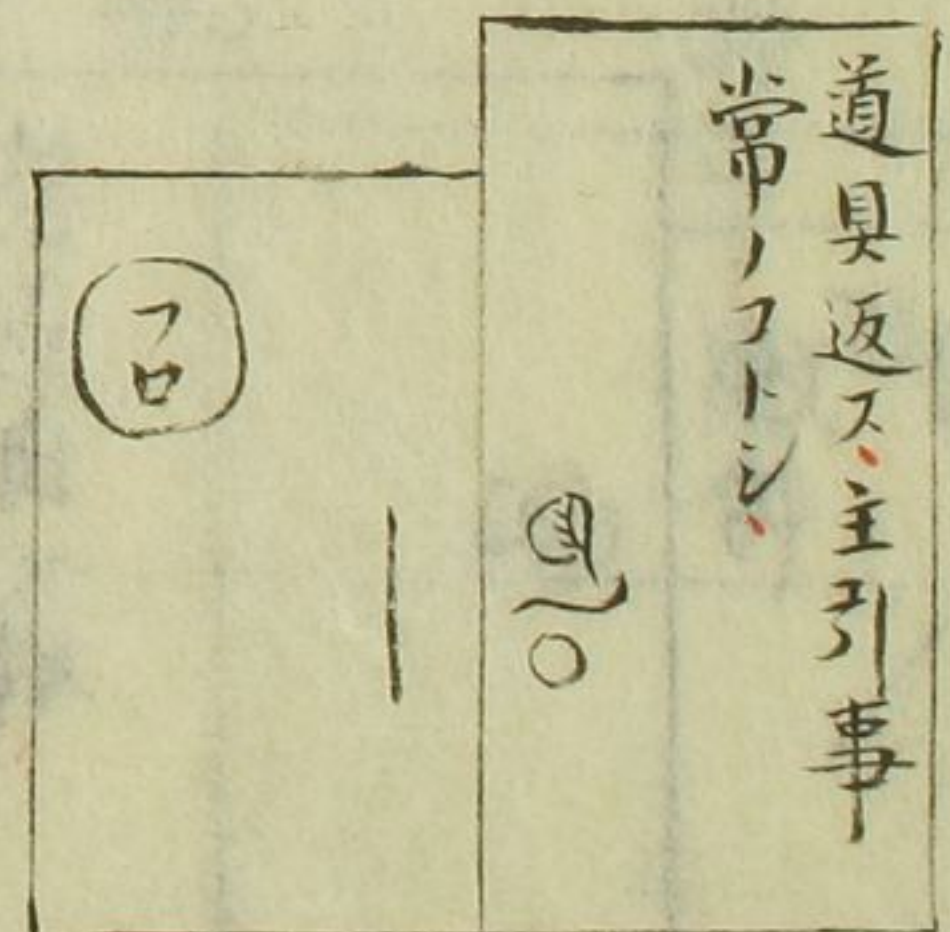 道具返ス主引事
常ノコトシ
フロ